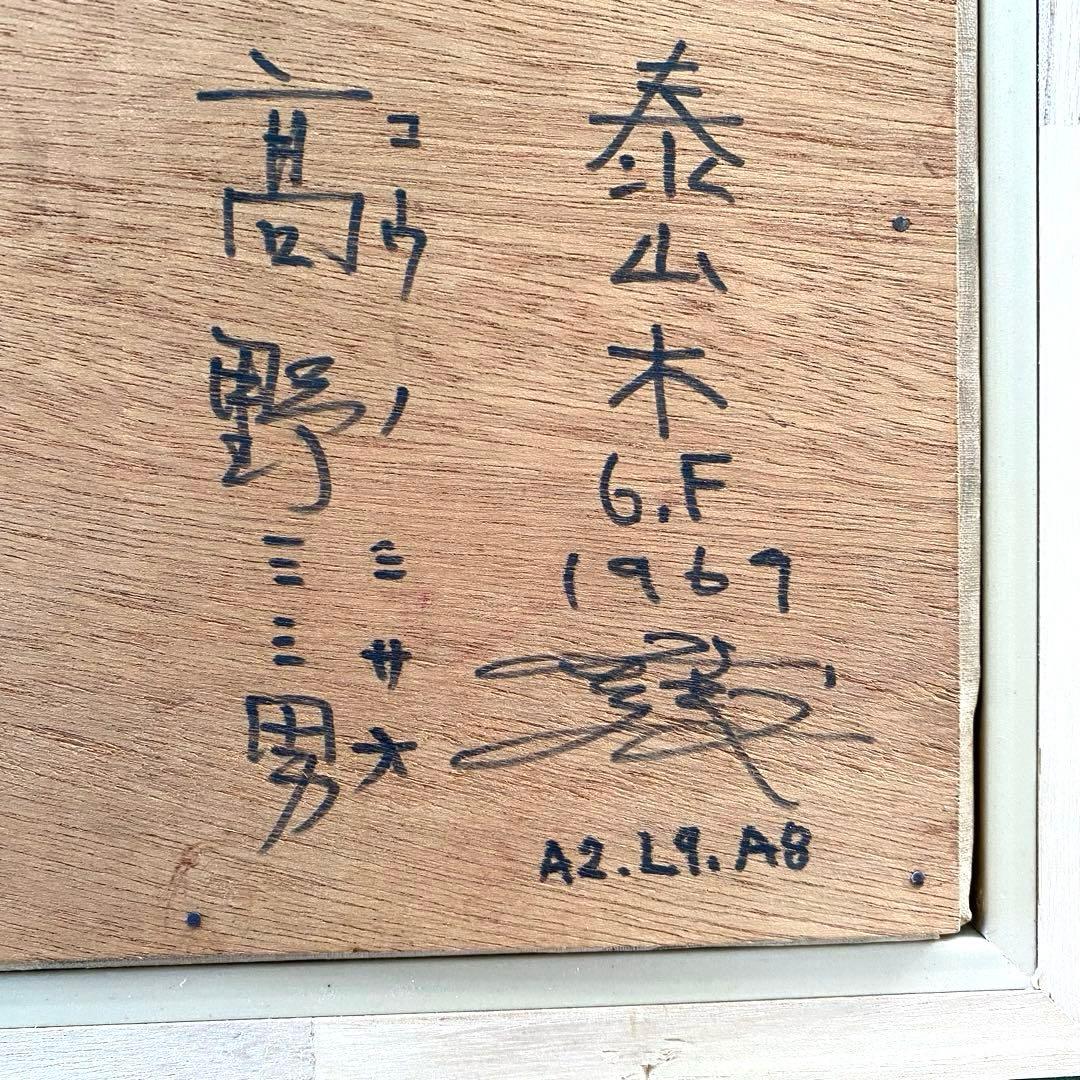 泰山木
6.F
1969
A2.L9.A8
高野三三男
コウノミサオ